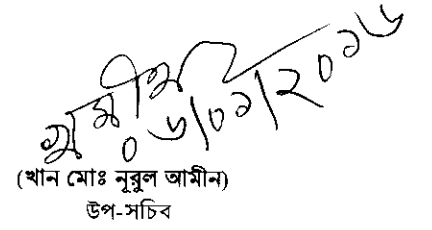 ০৬/০১/২০১৬
(খান মোঃ নূরুল আমীন)
উপ-সচিব